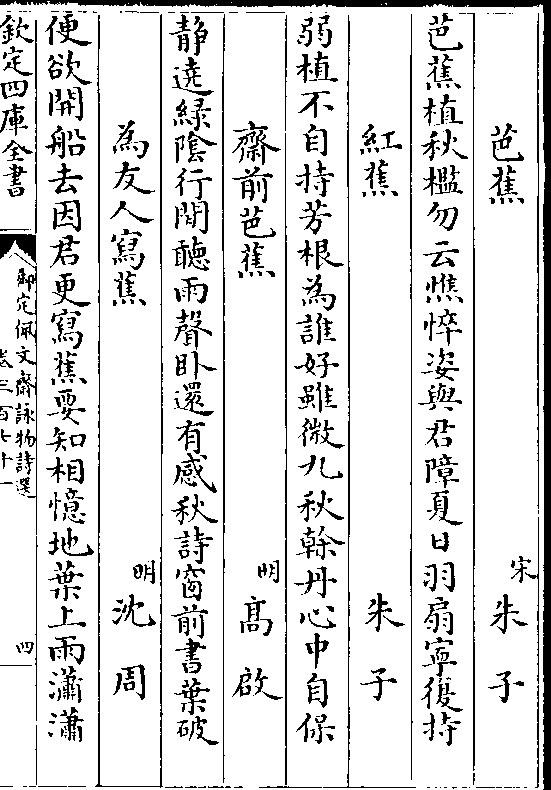 芭蕉 宋 朱子
芭蕉植秋檻勿云憔悴姿與君障夏日羽扇寧復持
紅蕉 朱子
弱植不自持芳根為誰好雖微九秋榦丹心中自保
齋前芭蕉 明 高啟
静遶綠陰行閒聽雨聲卧還有感秋詩窗前書葉破
為友人寫蕉 明 沈周
便欲開船去因君更寫蕉要知相憶地葉上雨瀟瀟
欽定四庫全書
御定佩文齋詠物詩選
卷三百七十一
四